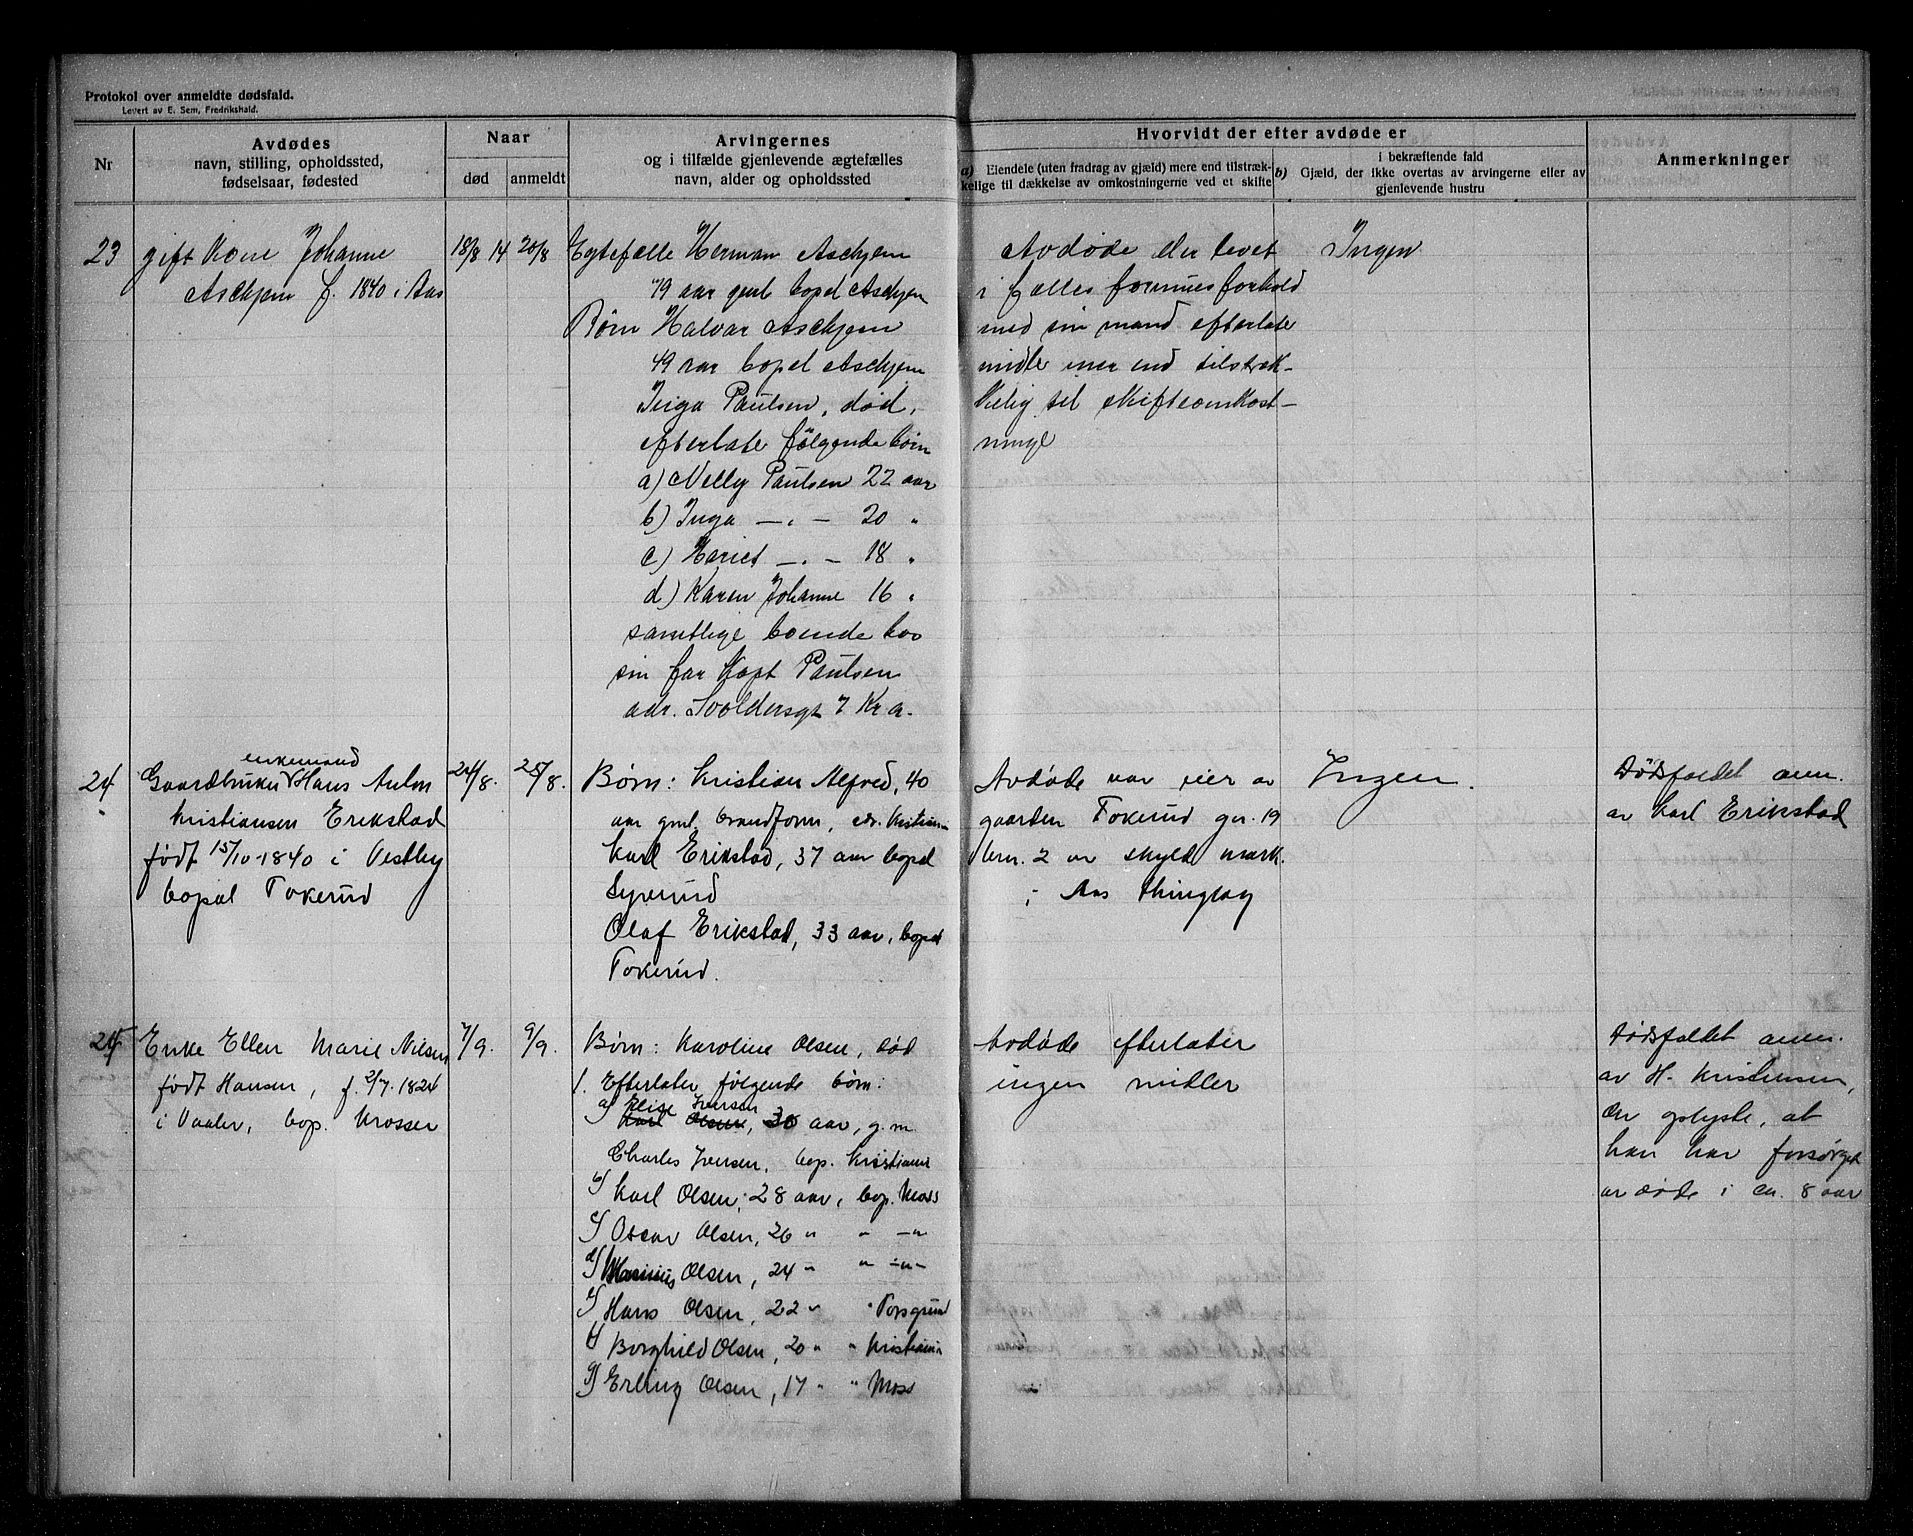 Protokol over anmeldte dødsfald.
Levert av E. Sem, Fredrikshald.
Nr
Avdødes
navn, stilling, opholdssted,
fødselsaar, fødested
Naar
død
anmeldt
Arvingernes
og i tilfælde gjenlevende ægtefælles
navn, alder og opholdssted
Hvorvidt der efter avdøde er
a) Eiendele (uten fradrag av gjæld) mere end tilstræk-
kelige til dækkelse av omkostningerne ved et skifte
i bekræftende fald
b) Gjæld, der ikke overtas av arvingerne eller av
gjenlevende hustru
Anmerkninger
23
gift Kone Johanne
Aschjem f. 1840 i Aas
18/8 14
20/8
Egtefælle Herman Aschjem
79 aar gml bopel Aschjem
Børn Halvar Aschjem
49 aar bopel Aschjem
Inga Paulsen, død,
efterlate følgende børn
a) Nelly Paulsen 22 aar
b) Inga — „ — 20 „
c) Hariet — „ — 18 „
d) Karen Johanne 16 „
samtlige boende hos
sin far Kapt Paulsen
adr. Svoldersgt 7 Kr a.
Avdøde der levet
i fælles formuesforhold
med sin mand efterlate
midler mer end tilstræk-
kelig til skifteomkost-
ninger
Ingen
24
enkemand
Gaardbruker Hans Anton
Kristiansen Erikstad
født 15/10-1840 i Vestby
bopæl Tokerud
24/8.
25/8.
Børn: Kristian Alfred, 40
aar gml, brandform, adr. Kristiania
Karl Erikstad, 37 aar bopel
Syverud
Olaf Erikstad, 33 aar, bopel
Tokerud.
Avdøde var eier av
gaarden Tokerud gr. 19
brn. 2 av skyld mark.
i Aas thinglag
Ingen.
Dødsfaldet anm.
av Karl Erikstad
25
Enke Ellen Marie Nilsen
født Hansen, f. 2/7-1824
i Vaaler, bop. Krosser
7/9.
9/9.
Børn: Karoline Olsen, død
1. Efterlater følgende børn:
a) Elise Iversen
Karl Olsen, 30 aar, g. m.
Charles Iversen, bop. Kristiania
b) Karl Olsen, 28 aar, bop. Moss
c) Oscar Olsen, 26 „ „ — „
d) Marius Olsen, 24 „ „ — „ —
e) Hans Olsen, 22 „ „ Porsgrund
f) Borghild Olsen, 20 „ „ Kristiania
g) Erling Olsen, 17 „ „ Moss
Avdøde efterlater
ingen midler
Dødsfaldet anm.
av H. Kristensen,
der oplyste, at
han har forsørget
avdøde i ca. 8 aar